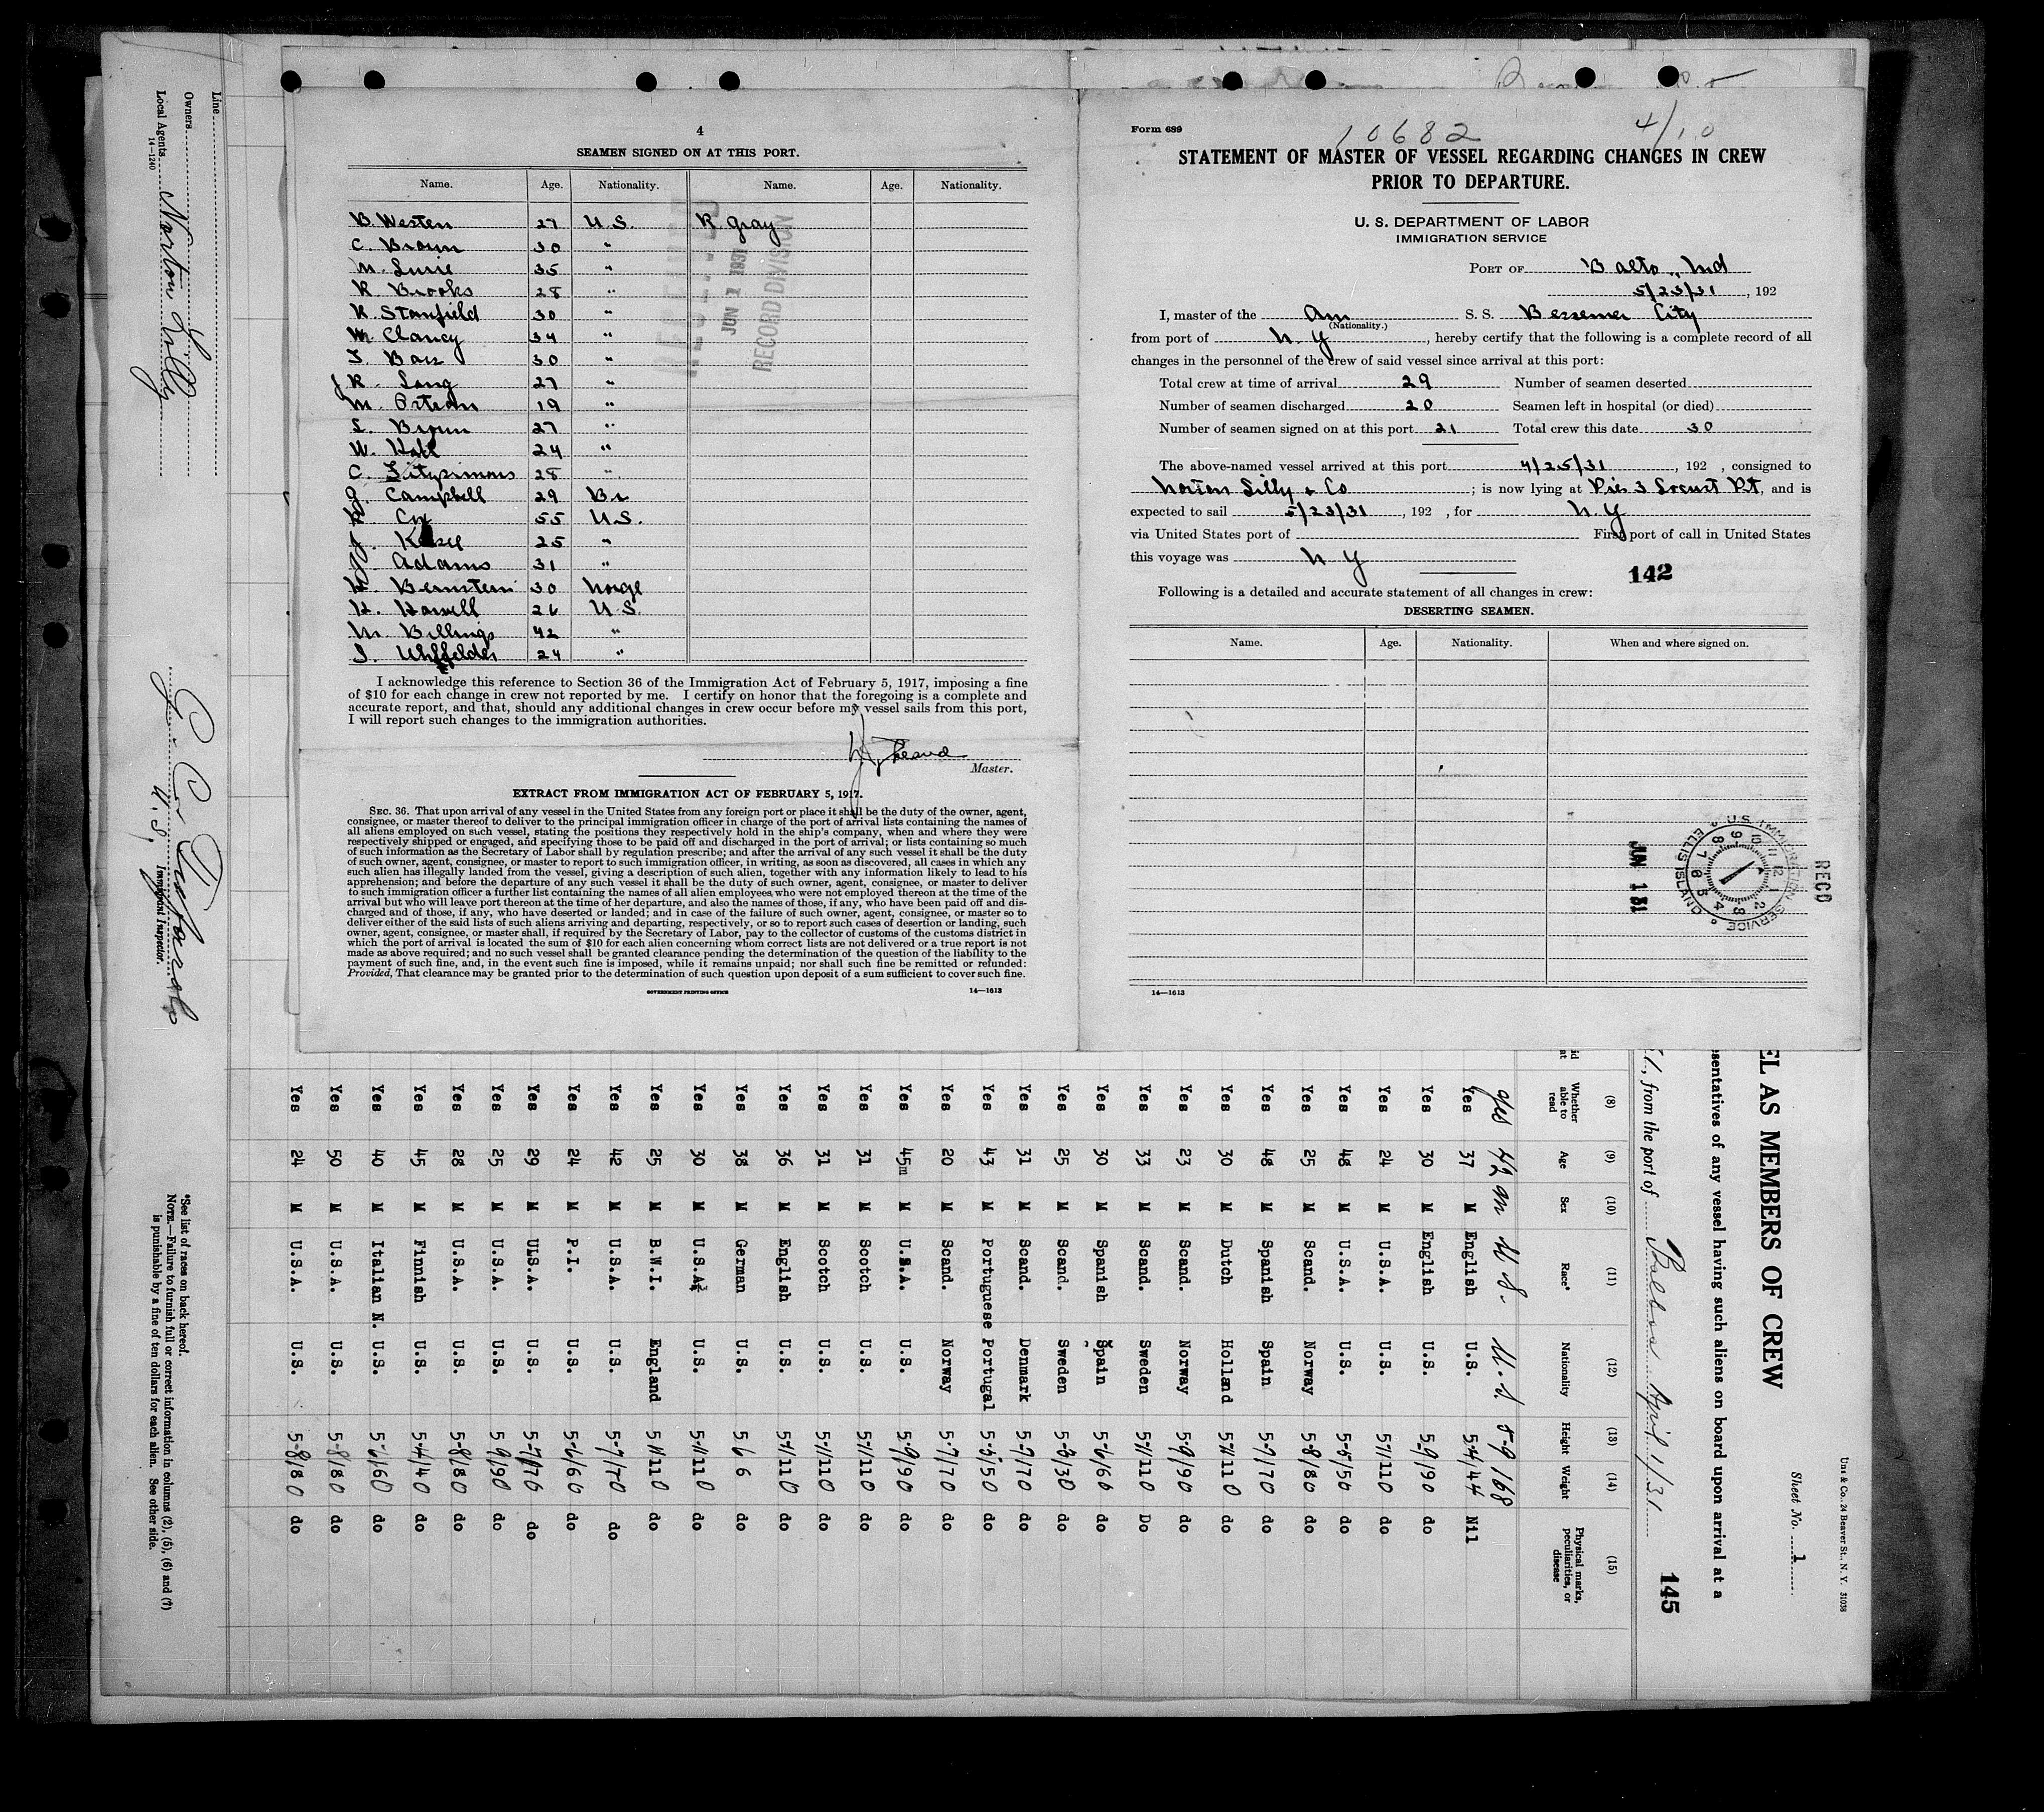 4
SEAMEN SIGNED ON AT THIS PORT.
Name. Age. Nationality. Name. Age. Nationality.
B. Westen 27 U.S. R. Gray
C. Brown 30 "
M. Lurie 35 "
R Brooks 28 "
R. Stanfield 30 "
M. Clancy 34 "
30 "
R. Lang 27 "
M. 19 "
L. Brown 27 "
W. Hall 24 "
C. Fitzsimons 28 "
G. Campbell 29 Br
Cox 55 U.S.
J. 25 "
J. Adams 31 "
Bernstein 30 Norge
H. 26 U.S.
M. Billings 42 "
I. Uhlfelder 24 "
RECEIVED
JUN 1 1931
RECORD DIVISION
I acknowledge this reference to Section 36 of the Immigration Act of February 5, 1917, imposing a fine
of $10 for each change in crew not reported by me. I certify on honor that the foregoing is a complete and
accurate report, and that, should any additional changes in crew occur before my vessel sails from this port,
I will report such changes to the immigration authorities.
Master.
EXTRACT FROM IMMIGRATION ACT OF FEBRUARY 5, 1917.
SEC. 36. That upon arrival of any vessel in the United States from any foreign port or place it shall be the duty of the owner, agent,
consignee, or master thereof to deliver to the principal immigration officer in charge of the port of arrival lists containing the names of
all aliens employed on such vessel, stating the positions they respectively hold in the ship's company, when and where they were
respectively shipped or engaged, and specifying those to be paid off and discharged in the port of arrival; or lists containing so much
of such information as the Secretary of Labor shall by regulation prescribe; and after the arrival of any such vessel it shall be the duty
of such owner, agent, consignee, or master to report to such immigration officer, in writing, as soon as discovered, all cases in which any
such alien has illegally landed from the vessel, giving a description of such alien, together with any information likely to lead to his
apprehension; and before the departure of any such vessel it shall be the duty of such owner, agent, consignee, or master to deliver
to such immigration officer a further list containing the names of all alien employees who were not employed thereon at the time of the
arrival but who will leave port thereon at the time of her departure, and also the names of those, if any, who have been paid off and dis-
charged and of those, if any, who have deserted or landed; and in case of the failure of such owner, agent, consignee, or master so to
deliver either of the said lists of such aliens arriving and departing, respectively, or so to report such cases of desertion or landing, such
owner, agent, consignee, or master shall, if required by the Secretary of Labor, pay to the collector of customs of the customs district in
which the port of arrival is located the sum of $10 for each alien concerning whom correct lists are not delivered or a true report is not
made as above required; and no such vessel shall be granted clearance pending the determination of the question of the liability to the
payment of such fine, and, in the event such fine is imposed, while it remains unpaid; nor shall such fine be remitted or refunded:
Provided, That clearance may be granted prior to the determination of such question upon deposit of a sum sufficient to cover such fine.
GOVERNMENT PRINTING OFFICE 14—1613
Form 689
10682 4/10
STATEMENT OF MASTER OF VESSEL REGARDING CHANGES IN CREW
PRIOR TO DEPARTURE.
U. S. DEPARTMENT OF LABOR
IMMIGRATION SERVICE
PORT OF Balto., Md
5/23/31, 192
I, master of the Am S. S. Bessemer City
(Nationality.)
from port of N. Y, hereby certify that the following is a complete record of all
changes in the personnel of the crew of said vessel since arrival at this port:
Total crew at time of arrival 29 Number of seamen deserted
Number of seamen discharged 20 Seamen left in hospital (or died)
Number of seamen signed on at this port 21 Total crew this date 30
The above-named vessel arrived at this port 4/25/31, 192 , consigned to
Norton Lilly & Co; is now lying at Pier 3 Locust Pt, and is
expected to sail 5/23/31, 192 , for N. Y
via United States port of First port of call in United States
this voyage was N Y
142
Following is a detailed and accurate statement of all changes in crew:
DESERTING SEAMEN.
Name. Age. Nationality. When and where signed on.
RECD
U.S. IMMIGRATION SERVICE ELLIS ISLAND
JUN 1 31
14—1613
Uns & Co., 24 Beaver St., N. Y. 31038
Sheet No. 1
EL AS MEMBERS OF CREW
esentatives of any vessel having such aliens on board upon arrival at a
, from the port of Balboa April 1/31
145
(8) (9) (10) (11) (12) (13) (14) (15)
Whether able to read Age Sex Race* Nationality Height Weight Physical marks, peculiarities, or disease
yes 42 m U S. U. S 5-9 168
Yes 37 M English U.S. 5-4 144 Nil
Yes 30 M English U.S. 5-9 190 do
Yes 24 M U.S.A. U.S. 5-7 110 do
Yes 48 M U.S.A. U.S. 5-5 150 do
Yes 25 M Scand. Norway 5-8 180 do
Yes 48 M Spanish Spain 5-7 170 do
Yes 30 M Dutch Holland do
Yes 23 M Scand. Norway 5-9 190 do
Yes 33 M Scand. Sweden Do
Yes 30 M Spanish Spain 5-6 160 do
Yes 25 M Scand. Sweden 5-3 130 do
Yes 31 M Scand. Denmark 5-7 170 do
Yes 43 M Portuguese Portugal 5-5 150 do
Yes 20 M Scand. Norway 5-7 170 do
Yes 45m M U.S.A. U.S. 5-9 190 do
Yes 31 M Scotch U.S. do
Yes 31 M Scotch U.S. do
Yes 36 M English U.S. do
Yes 38 M German U.S. do
Yes 30 M U.S.A. U.S. do
Yes 25 M B.W.I. England do
Yes 42 M U.S.A. U.S. 5-7 170 do
Yes 24 M P.I. U.S. 5-6 160 do
Yes 29 M U.S.A. U.S. do
Yes 25 M U.S.A. U.S. 5 9 190 do
Yes 28 M U.S.A. U.S. 5-8 180 do
Yes 45 M Finnish U.S. 5-4 140 do
Yes 40 M Italian N. U.S. 5-6 160 do
Yes 50 M U.S.A. U.S. 5-8 180 do
Yes 24 M U.S.A. U.S. 5-8 180 do
Line
Owners
Local Agents Norton Lilly
14—1240
U. S. Immigrant Inspector.
*See list of races on back hereof.
NOTE.—Failure to furnish full or correct information in columns (2), (5), (6) and (7)
is punishable by a fine of ten dollars for each alien. See other side.